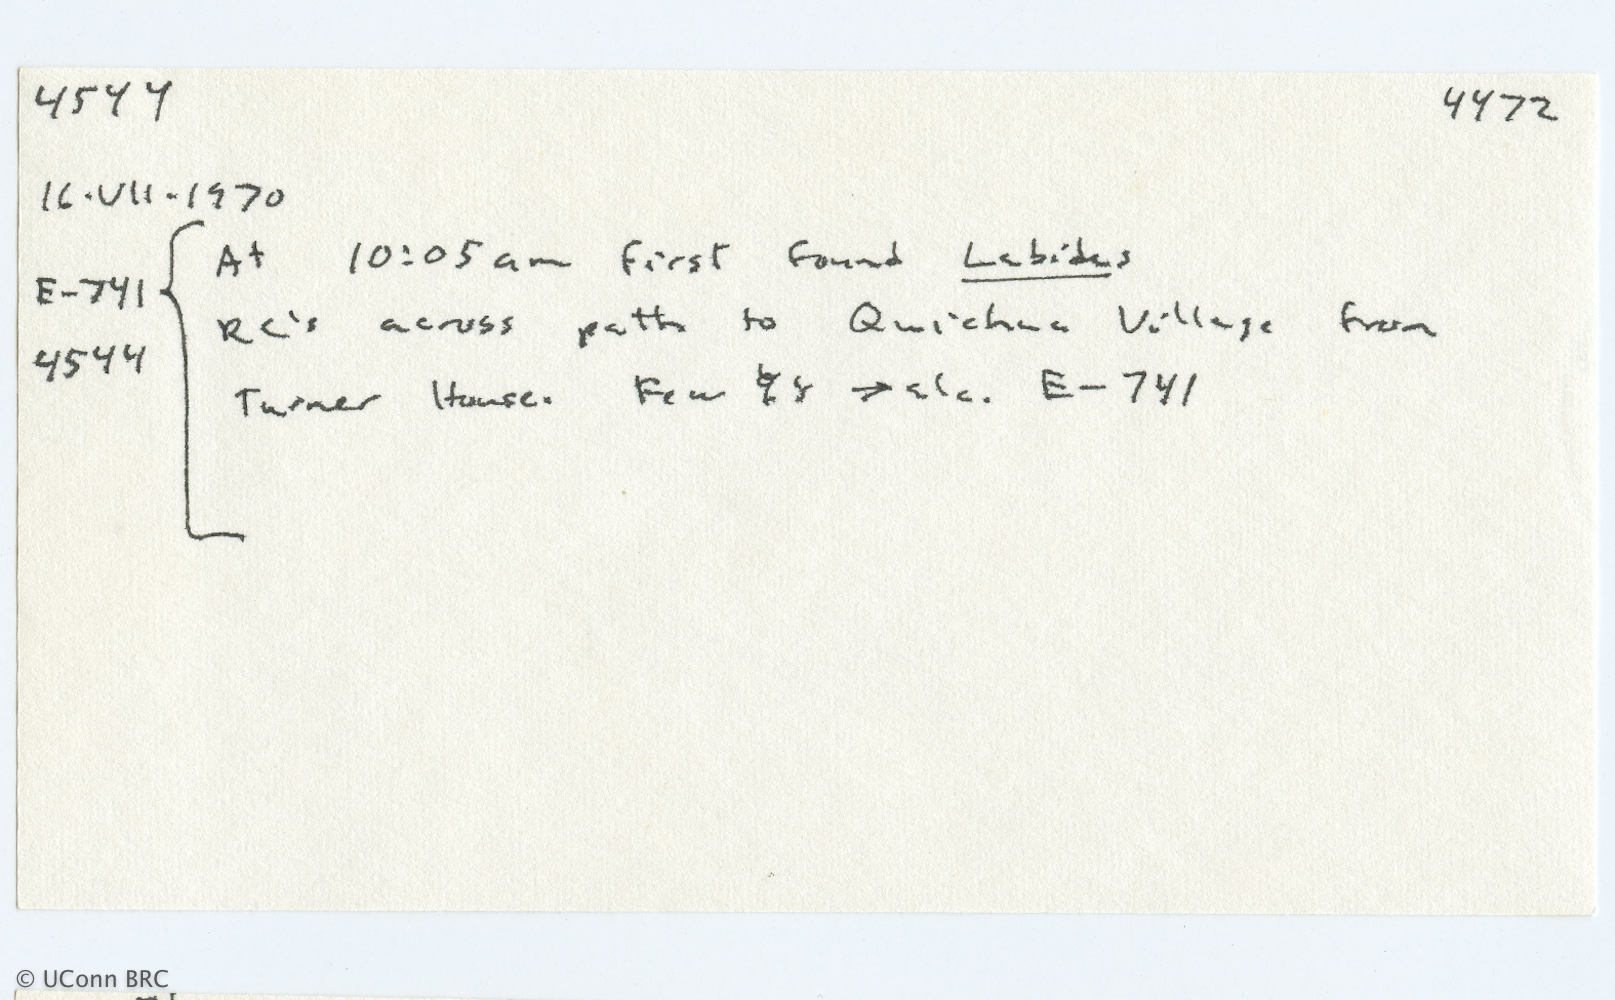 4544 4472
16·VII·1970
At 10:05am first found Labidus
E-741
RC's across path to Quichua Village from
4544
Turner House. Few ☿s → alc. E-741
© UConn BRC